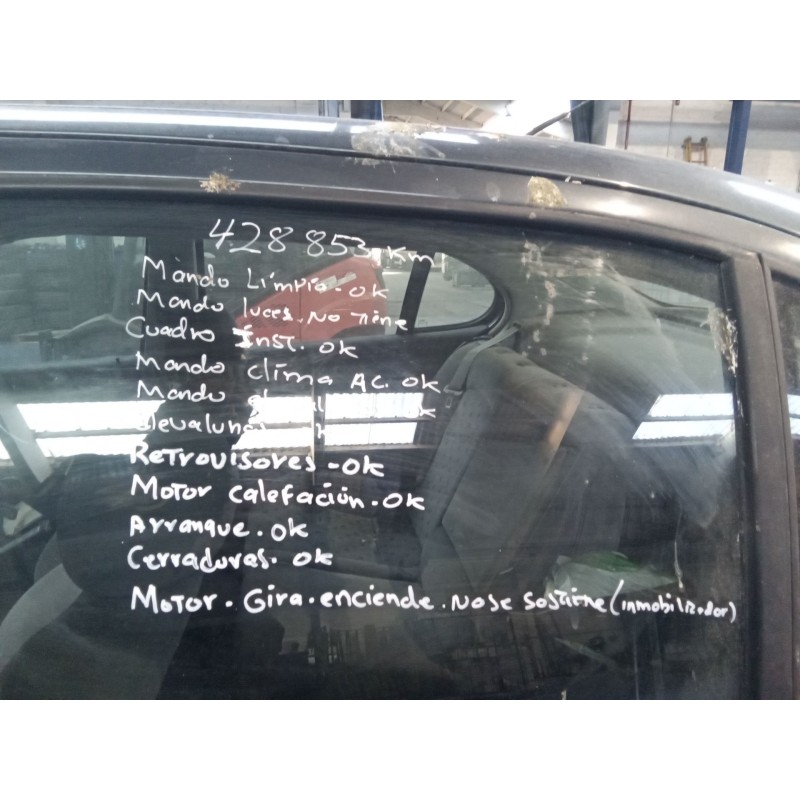 428853 Km
Mando Limpia - OK
Mando luces. No Tiene
Cuadro inst. OK
Mando clima AC. OK
Mando OK
elevalunas
Retrovisores - OK
Motor calefación. OK
Arranque. OK
Cerraduras. OK
Motor. Gira. enciende. No se sostiene (inmobilizador)